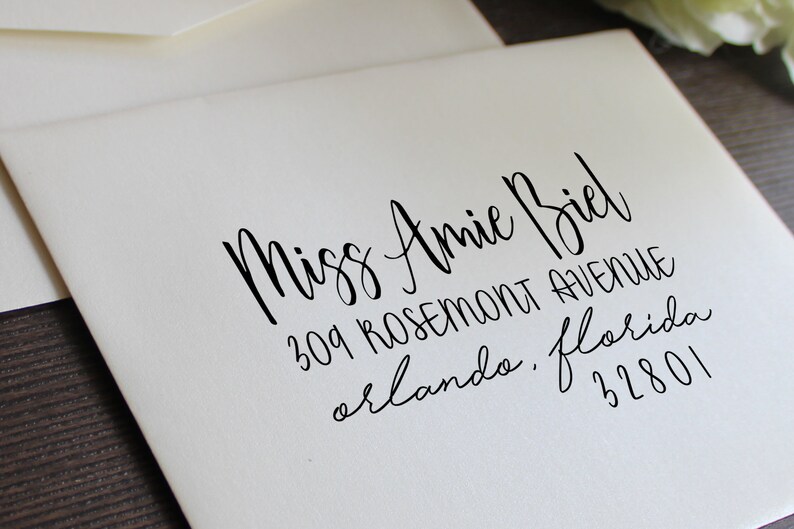 Miss Amie Biel
309 ROSEMONT AVENUE
orlando, florida
32801